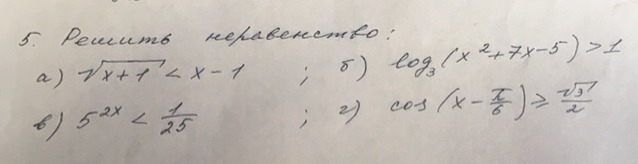 5. Решить неравенство:
а) √(x+1) < x - 1 ; б) log₃(x²+7x-5) > 1
в) 5²ˣ < 1/25 ; г) cos(x - π/6) ≥ √3/2